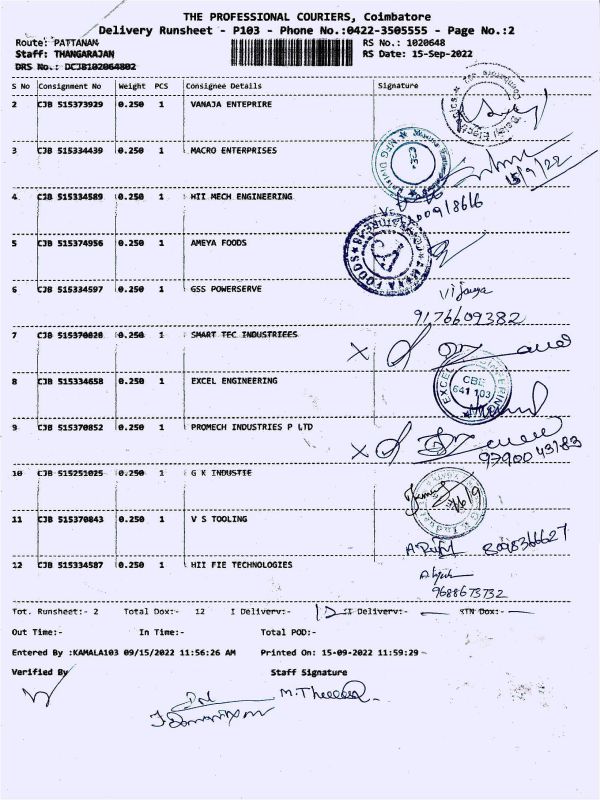 THE PROFESSIONAL COURIERS, Coimbatore
Delivery Runsheet - P103 - Phone No.:0422-3505555 - Page No.:2
Route: PATTANAM RS No.: 1020648
Staff: THANGARAJAN RS Date: 15-Sep-2022
DRS No.: DCJB102064802
S No Consignment No Weight PCS Consignee Details Signature
2 CJB 515373929 0.250 1 VANAJA ENTEPRIRE
3 CJB 515334439 0.250 1 MACRO ENTERPRISES
15/9/22
4 CJB 515334589 0.250 1 HII MECH ENGINEERING
5 CJB 515374956 0.250 1 AMEYA FOODS
6 CJB 515334597 0.250 1 GSS POWERSERVE
Vijaya
9176609382
7 CJB 515370828 0.250 1 SMART TEC INDUSTRIEES
8 CJB 515334658 0.250 1 EXCEL ENGINEERING
CBE
641 103
9 CJB 515370852 0.250 1 PROMECH INDUSTRIES P LTD
9790043183
10 CJB 515251025 0.250 1 G K INDUSTIE
11 CJB 515370843 0.250 1 V S TOOLING
8098366627
12 CJB 515334587 0.250 1 HII FIE TECHNOLOGIES
9688673732
Tot. Runsheet:- 2 Total Dox:- 12 I Delivery:- 12 II Delivery:- STN Dox:-
Out Time:- In Time:- Total POD:-
Entered By :KAMALA103 09/15/2022 11:56:26 AM Printed On: 15-09-2022 11:59:29
Verified By Staff Signature